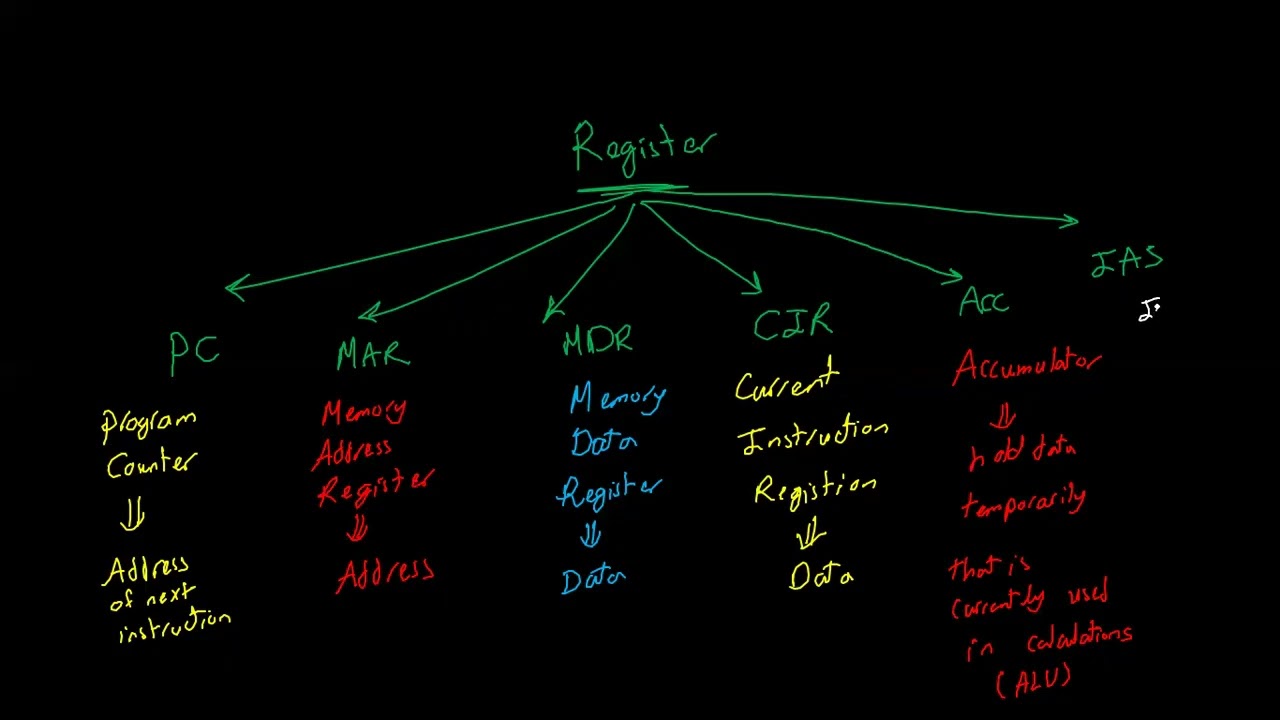 Register
PC
Program
Counter
⇓
Address
of next
instruction
MAR
Memory
Address
Register
⇓
Address
MDR
Memory
Data
Register
⇓
Data
CIR
Current
Instruction
Registion
⇓
Data
Acc
Accumulator
⇓
hold data
temporarily
that is
currently used
in calculations
(ALU)
IAS
I